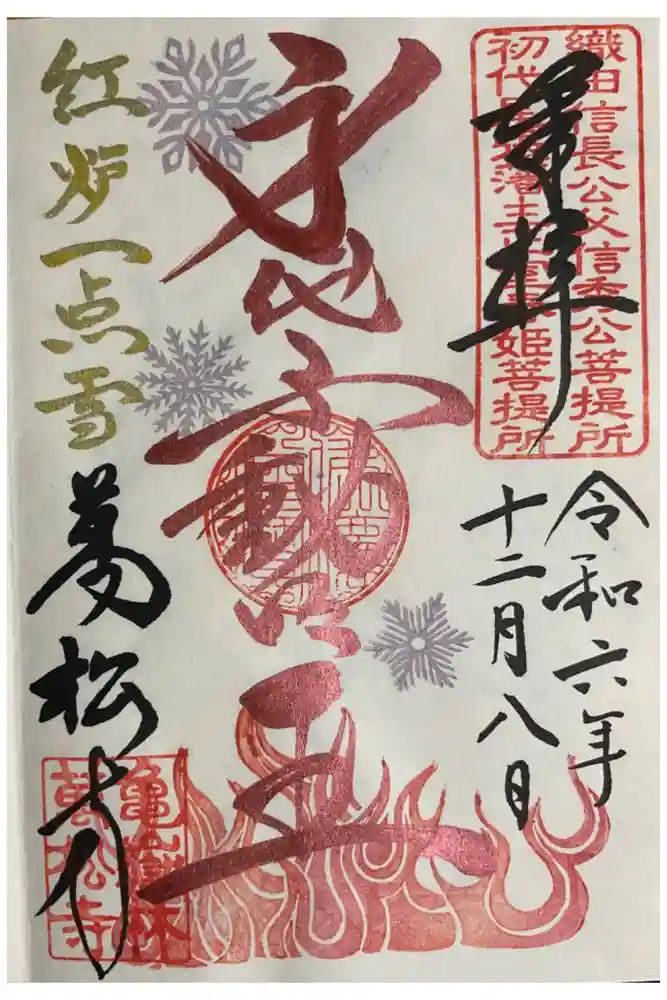 奉拝
織田信長公父信秀公菩提所
初代尾張藩主正室春姫菩提所
令和六年
十二月八日
身代不動明王
紅炉一点雪
萬松寺
亀嶽林
萬松寺